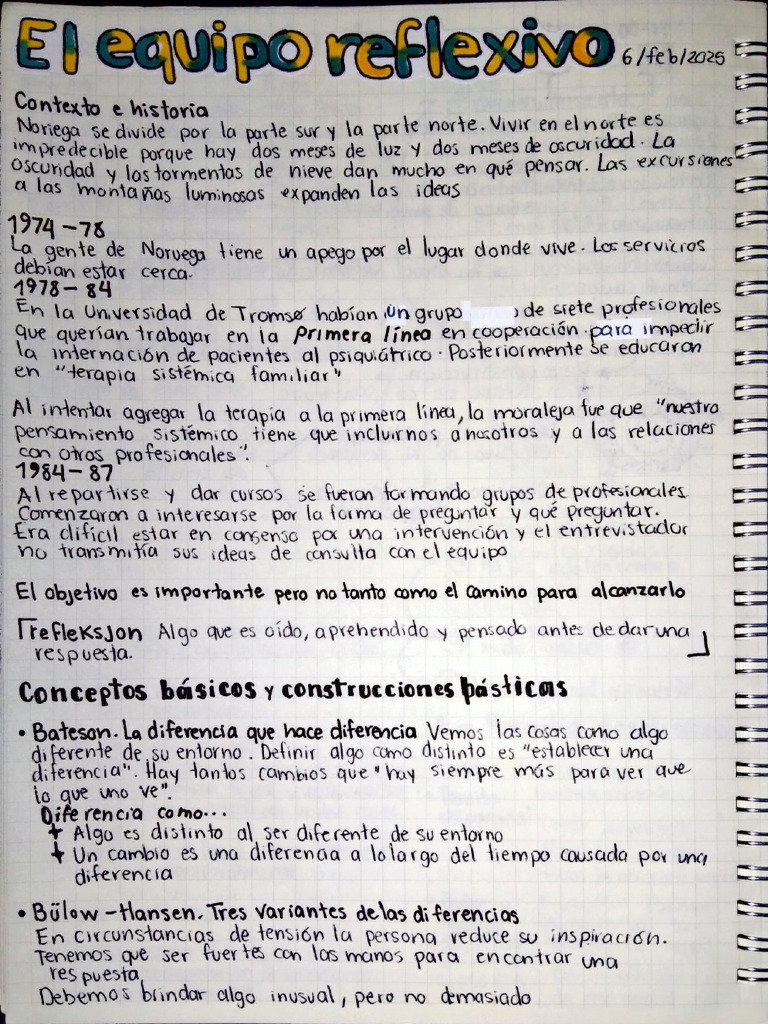 El equipo reflexivo 6/feb/2025
Contexto e historia
Noriega se divide por la parte sur y la parte norte. Vivir en el norte es
impredecible porque hay dos meses de luz y dos meses de oscuridad. La
oscuridad y las tormentas de nieve dan mucho en qué pensar. Las excursiones
a las montañas luminosas expanden las ideas
1974-78
La gente de Noruega tiene un apego por el lugar donde vive. Los servicios
debían estar cerca.
1978-84
En la Universidad de Tromsø habían un grupo de siete profesionales
que querían trabajar en la primera línea en cooperación para impedir
la internación de pacientes al psiquiátrico. Posteriormente se educaron
en "terapia sistémica familiar"
Al intentar agregar la terapia a la primera línea, la moraleja fue que "nuestro
pensamiento sistémico tiene que incluirnos a nosotros y a las relaciones
con otros profesionales".
1984-87
Al repartirse y dar cursos se fueron formando grupos de profesionales.
Comenzaron a interesarse por la forma de preguntar y qué preguntar.
Era difícil estar en consenso por una intervención y el entrevistador
no transmitía sus ideas de consulta con el equipo
El objetivo es importante pero no tanto como el camino para alcanzarlo
refleksjon Algo que es oído, aprehendido y pensado antes de dar una
respuesta.
Conceptos básicos y construcciones básticas
• Bateson. La diferencia que hace diferencia Vemos las cosas como algo
diferente de su entorno. Definir algo como distinto es "establecer una
diferencia". Hay tantos cambios que "hay siempre más para ver que
lo que uno ve".
Diferencia como...
+ Algo es distinto al ser diferente de su entorno
+ Un cambio es una diferencia a lo largo del tiempo causada por una
diferencia
• Bülow-Hansen. Tres variantes de las diferencias
En circunstancias de tensión la persona reduce su inspiración.
Tenemos que ser fuertes con las manos para encontrar una
respuesta
Debemos brindar algo inusual, pero no demasiado